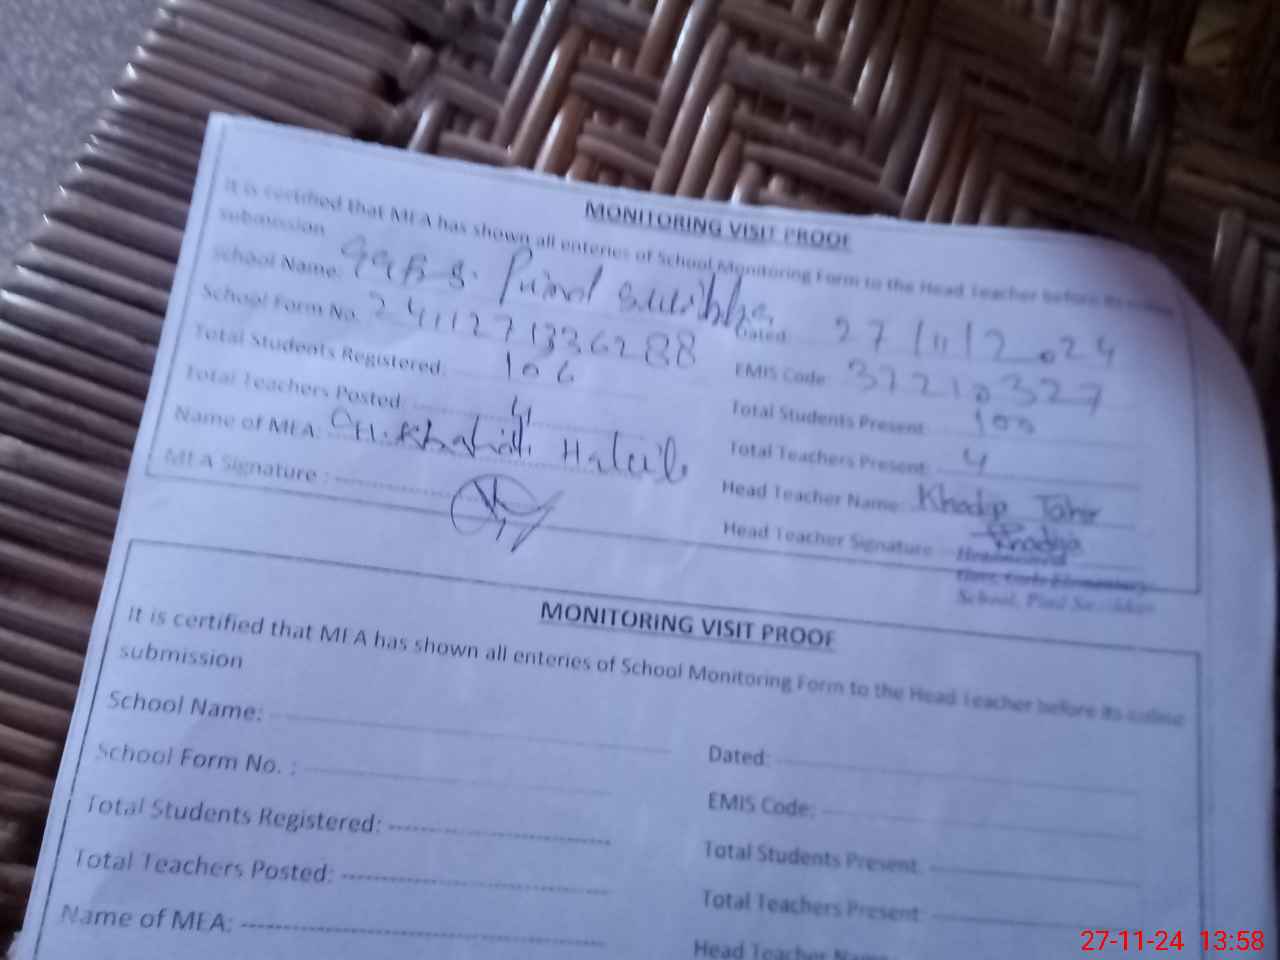 MONITORING VISIT PROOF
It is certified that MEA has shown all enteries of School Monitoring Form to the Head Teacher before its online
submission
School Name:
Dated: 27/11/2024
School Form No. 2411271336288
EMIS Code: 37210327
Total Students Registered: 106
Total Students Present: 100
Total Teachers Posted: 4
Total Teachers Present: 4
Name of MEA:
Head Teacher Name: Tahir
MEA Signature :
Head Teacher Signature
School,
MONITORING VISIT PROOF
It is certified that MEA has shown all enteries of School Monitoring Form to the Head Teacher before its online
submission
School Name:
Dated:
School Form No. :
EMIS Code:
Total Students Registered:
Total Students Present
Total Teachers Posted:
Total Teachers Present
Name of MEA:
Head Teacher Name
27-11-24 13:58